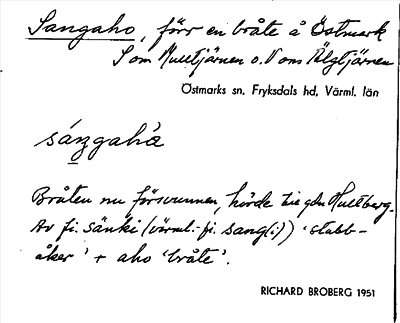 Sangaho, förr en bråte å Östmark
S om Mulltjärnen o. V om Älgtjärnen
Östmarks sn, Fryksdals hd, Värml. län
sáŋgahà
Bråten nu försvunnen, hörde till gdn Multberg.
Av fi. sänki (värml.-fi. sang(i)) 'stubb-
åker' + aho 'bråte'.
RICHARD BROBERG 1951